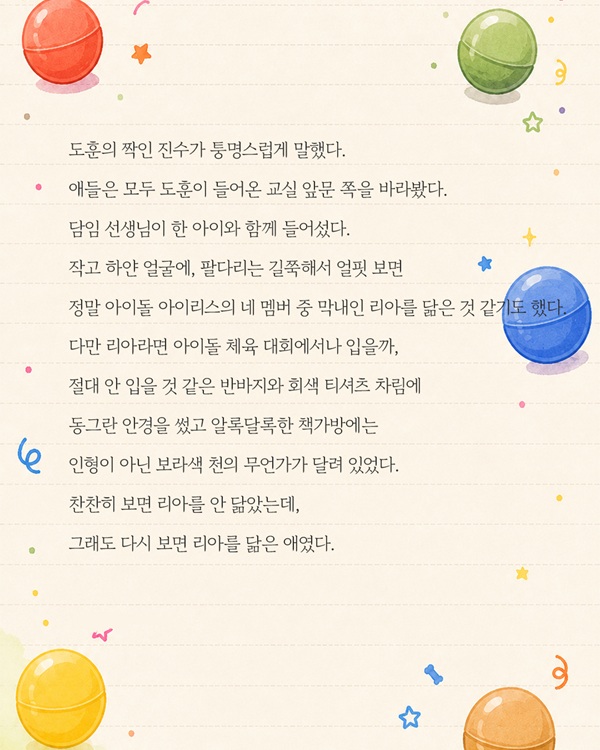 도훈의 짝인 진수가 퉁명스럽게 말했다.
애들은 모두 도훈이 들어온 교실 앞문 쪽을 바라봤다.
담임 선생님이 한 아이와 함께 들어섰다.
작고 하얀 얼굴에, 팔다리는 길쭉해서 얼핏 보면
정말 아이돌 아이리스의 네 멤버 중 막내인 리아를 닮은 것 같기도 했다.
다만 리아라면 아이돌 체육 대회에서나 입을까,
절대 안 입을 것 같은 반바지와 회색 티셔츠 차림에
동그란 안경을 썼고 알록달록한 책가방에는
인형이 아닌 보라색 천의 무언가가 달려 있었다.
찬찬히 보면 리아를 안 닮았는데,
그래도 다시 보면 리아를 닮은 애였다.